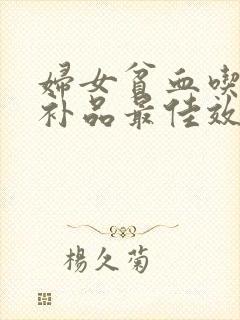 婦女貧血喫
补品最佳效
楊久菊